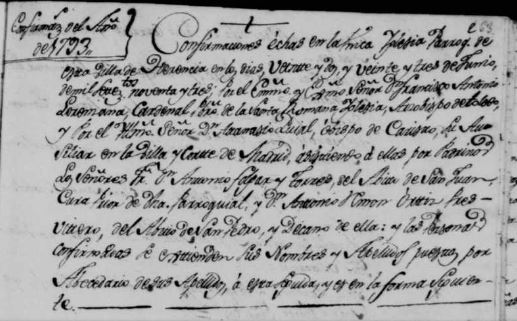 Confirmaz.s del Año
de 1793,,
253
Confirmaciones echas en la Unica Yglesia Parroq.l de
esta Villa de Herencia en los dias, Veinte y dos, y veinte y tres de Junio,
de mil setez.tos noventa y tres; por el Emmo. y Exmo. Señor Dn. Francisco Antonio
Lorenzana, Cardenal, Pro. de la Santa Romana Yglesia, Arzobispo de Toledo
y por el Yltmo. Señor Dn. Atanasio Puial, Obispo de Caristo, su Au
siliar en la Villa y Corte de Madrid, asistiendo á ellas por Padrinos
los Señores Fr. Dn. Antonio y Torres, del Abito de San Juan
Cura Prior de dha. Parroquial, y Dn. Antonio Ximon Pres-
vitero, del Abito de San Pedro, y Decano de ella: y las Personas
confirmadas se entienden sus Nombres y Apellidos puestos, por
Abecedario de sus Apellidos, á esta y es en la forma siguien-
te.